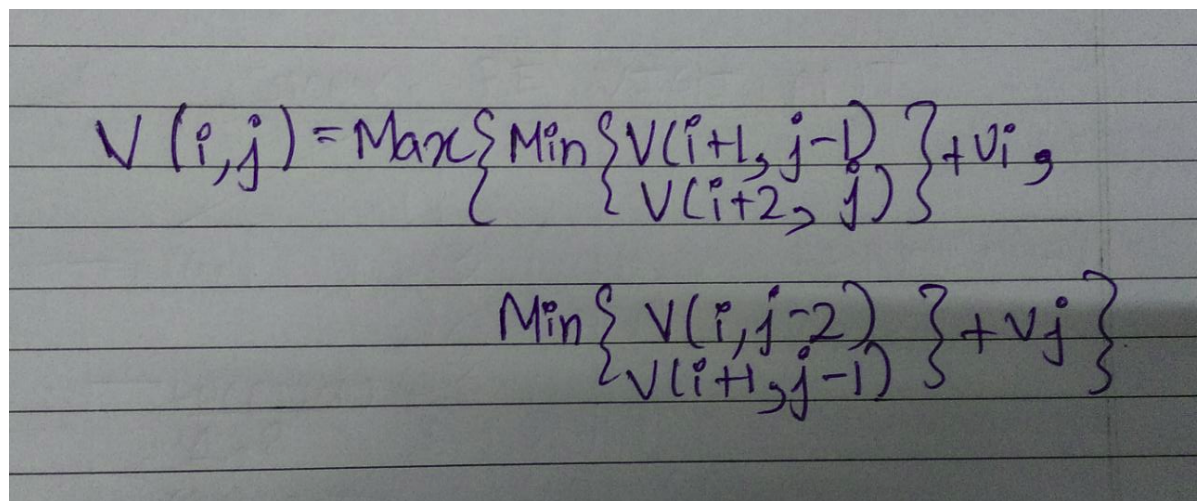 V (i,j) = Max { Min { V(i+1, j-1)
V(i+2, j) } + vi ,
Min { V(i, j-2)
V(i+1, j-1) } + vj }